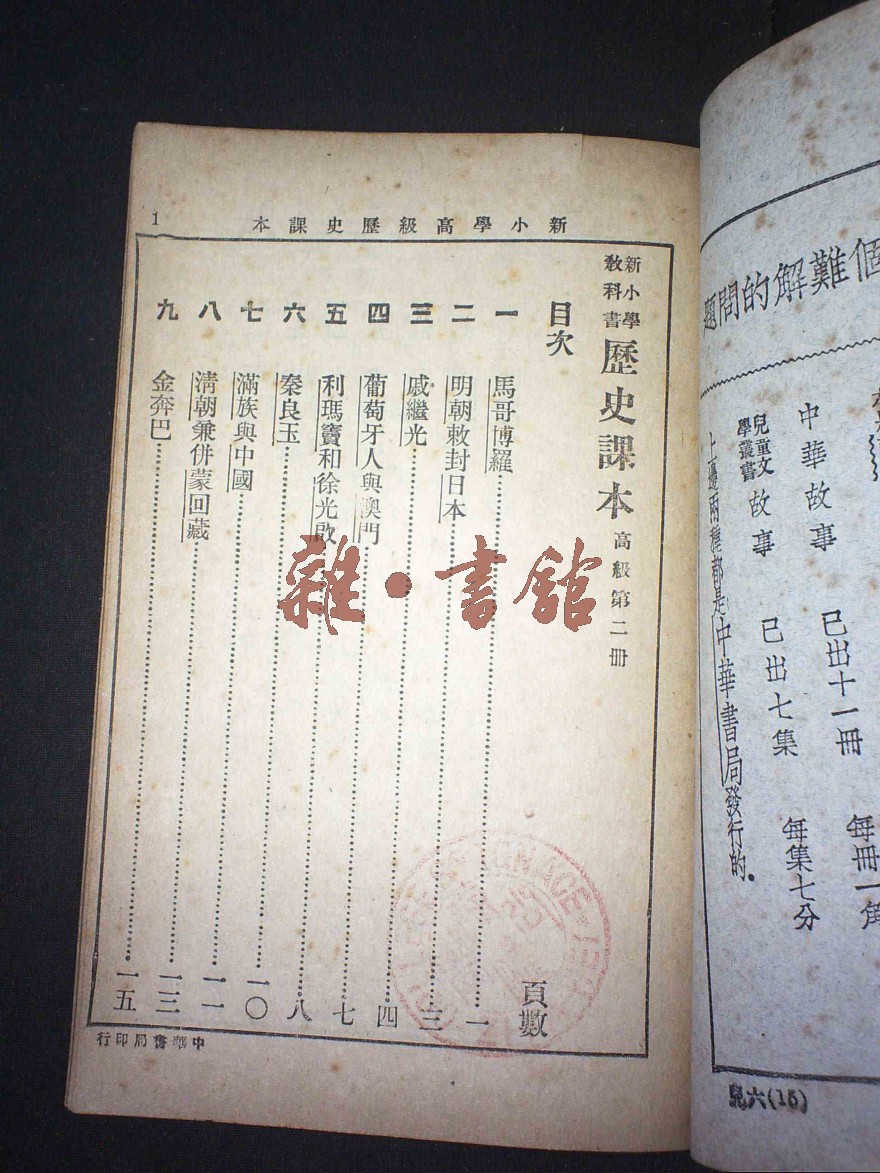 1
新小學高級歷史課本
新小學
教科書
歷史課本
高級第二冊
目次
頁數
一 馬哥博羅 一
二 明朝敕封日本 三
三 戚繼光 四
四 葡萄牙人與澳門 七
五 利瑪竇和徐光啟 八
六 秦良玉 一〇
七 滿族與中國 一一
八 清朝兼併蒙回藏 一三
九 金奔巴 一五
中華書局印行
雜·書館
個難解的問題
中華故事 已出十一冊 每冊一角
兒童文
學叢書
故事 已出七集 每集七分
上邊兩種都是中華書局發行的。
兒六(15)